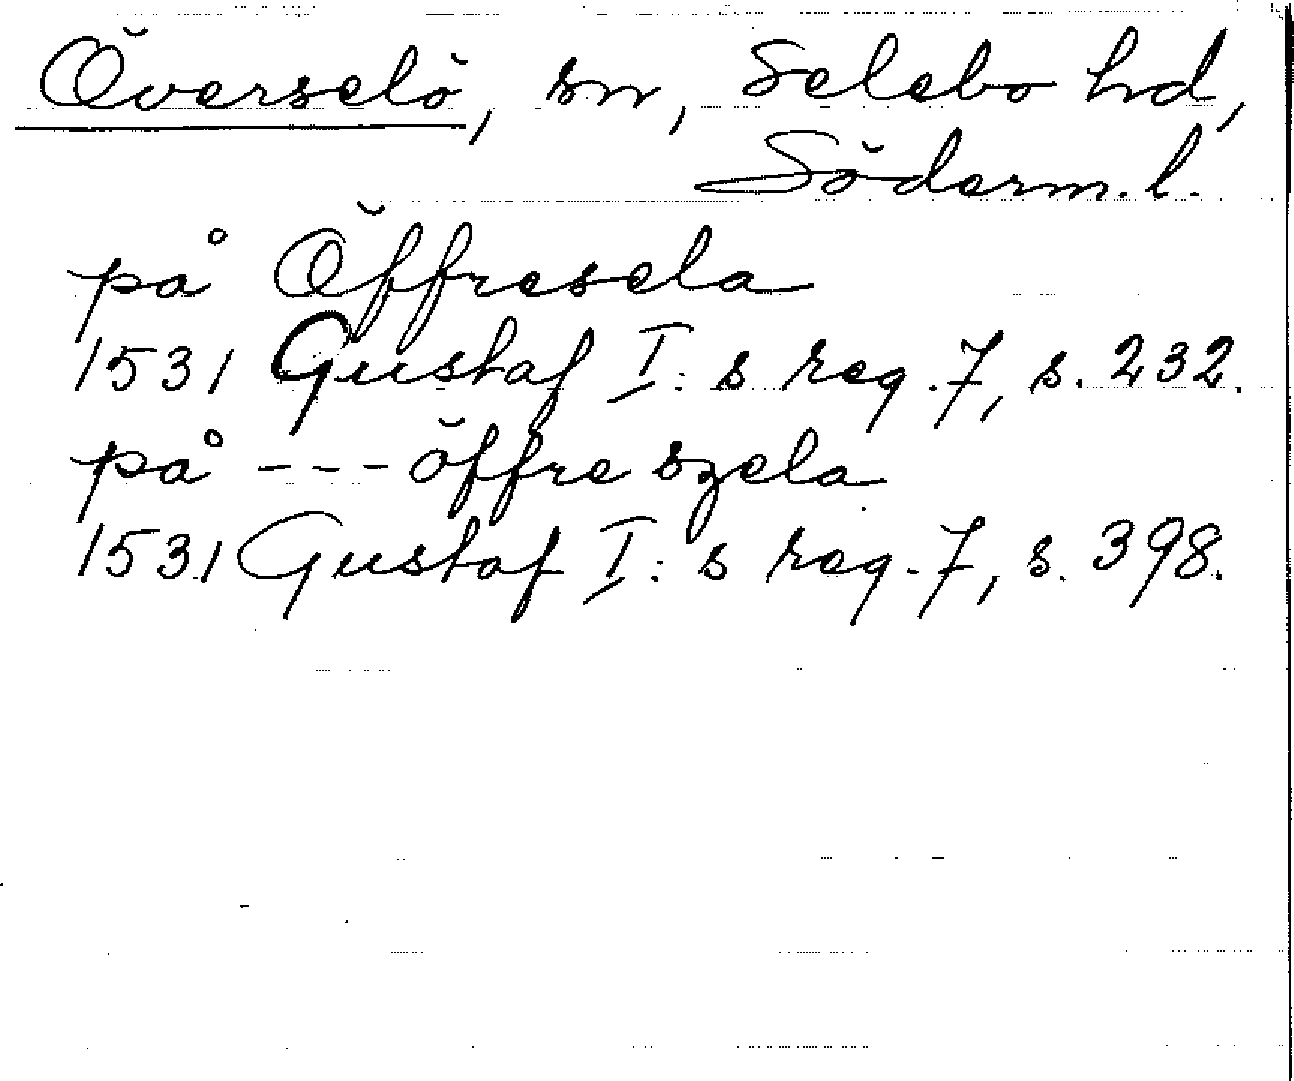 Överselö, sn, Selebo hd,
Söderm. l.
på Öffresela
1531 Gustaf I:s reg. 7, s. 232.
på --- öffre szela
1531 Gustaf I:s reg. 7, s. 398.